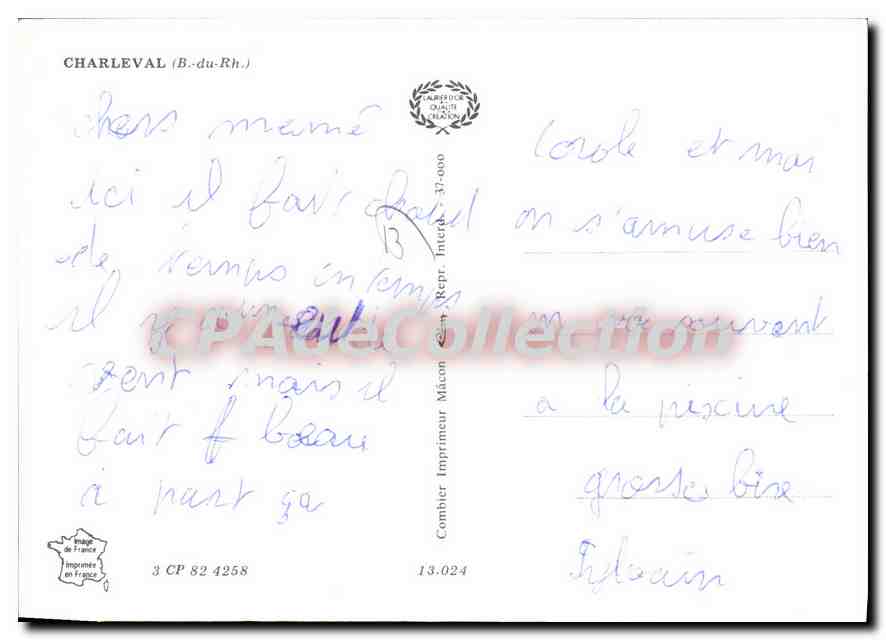 CHARLEVAL (B.-du-Rh.)
LAURIER D'OR
QUALITÉ
CRÉATION
chers mamé
ici il fait chaud
B
de temps en temps
il y a
vent mais il
fait beau
à part ça
Carole et moi
on s'amuse bien
on va souvent
a la piscine
grosse bise
Sylvain
Combier Imprimeur Mâcon Repr. Interd. - 37-000
CPAdeCollection
Image
de France
Imprimée
en France
3 CP 82 4258
13.024